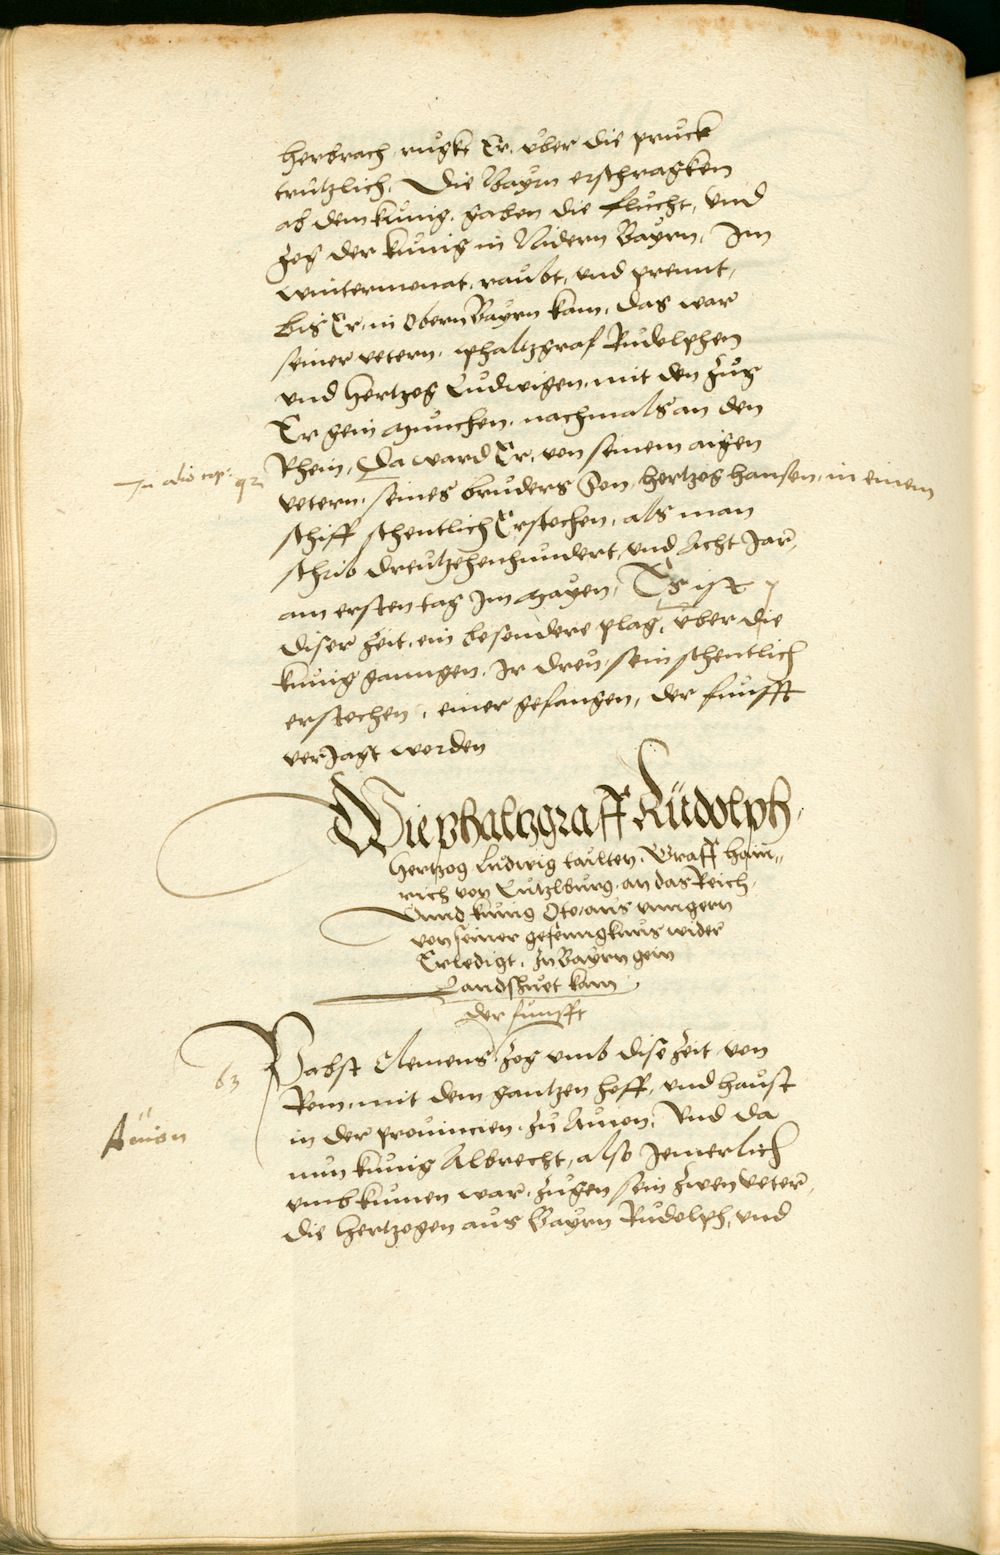 herbrach, rugkt Er, uber die pruck
trutzlich, Die Bayrn erschragken
ab dem kunig, gaben die flucht, und
zog der kunig in Nidern Bayrn, Im
wintermonat, raubt, und prennt,
bis Er, in Obern Bayrn kam, das war
seiner vetern, phaltzgraf Rudolphen
und Hertzog Ludwigen, mit den zug
Er gein Munchen, nachmals an den
Rhein, Da ward Er, von seinem aigen
In alio exp:
92
vetern, seines bruders Son, hertzog hansen, in einem
schiff schentlich Erstochen, als man
schrib dreutzehenhundert, und Acht Jar,
am ersten tag Im Mayen, Es ist
diser zeit, ein besondere plag, uber die
kunig ganngen, Ir dreu sein schentlich
erstochen, einer gefangen, der funfft
verJagt worden
Wie phaltzgraff Rüdolph,
Hertzog Ludwig tailten, Graff hain„
rich von Lutzlburg, an das Reich,
Unnd kunig Oto, aus unngern
von seiner gefenngknus wider
Erledigt, In Bayrn gein
Landshuet kam
der funfft
63
Pabst Clemens zog umb dise zeit von
Rom, mit dem gantzen hoff, und haust
Auion
in der provincien, zu Auion, Und da
nun kunig Albrecht, also Jemerlich
umbkumen war, zugen sein zwen veter,
die Hertzogen aus Bayrn Rudolph, und